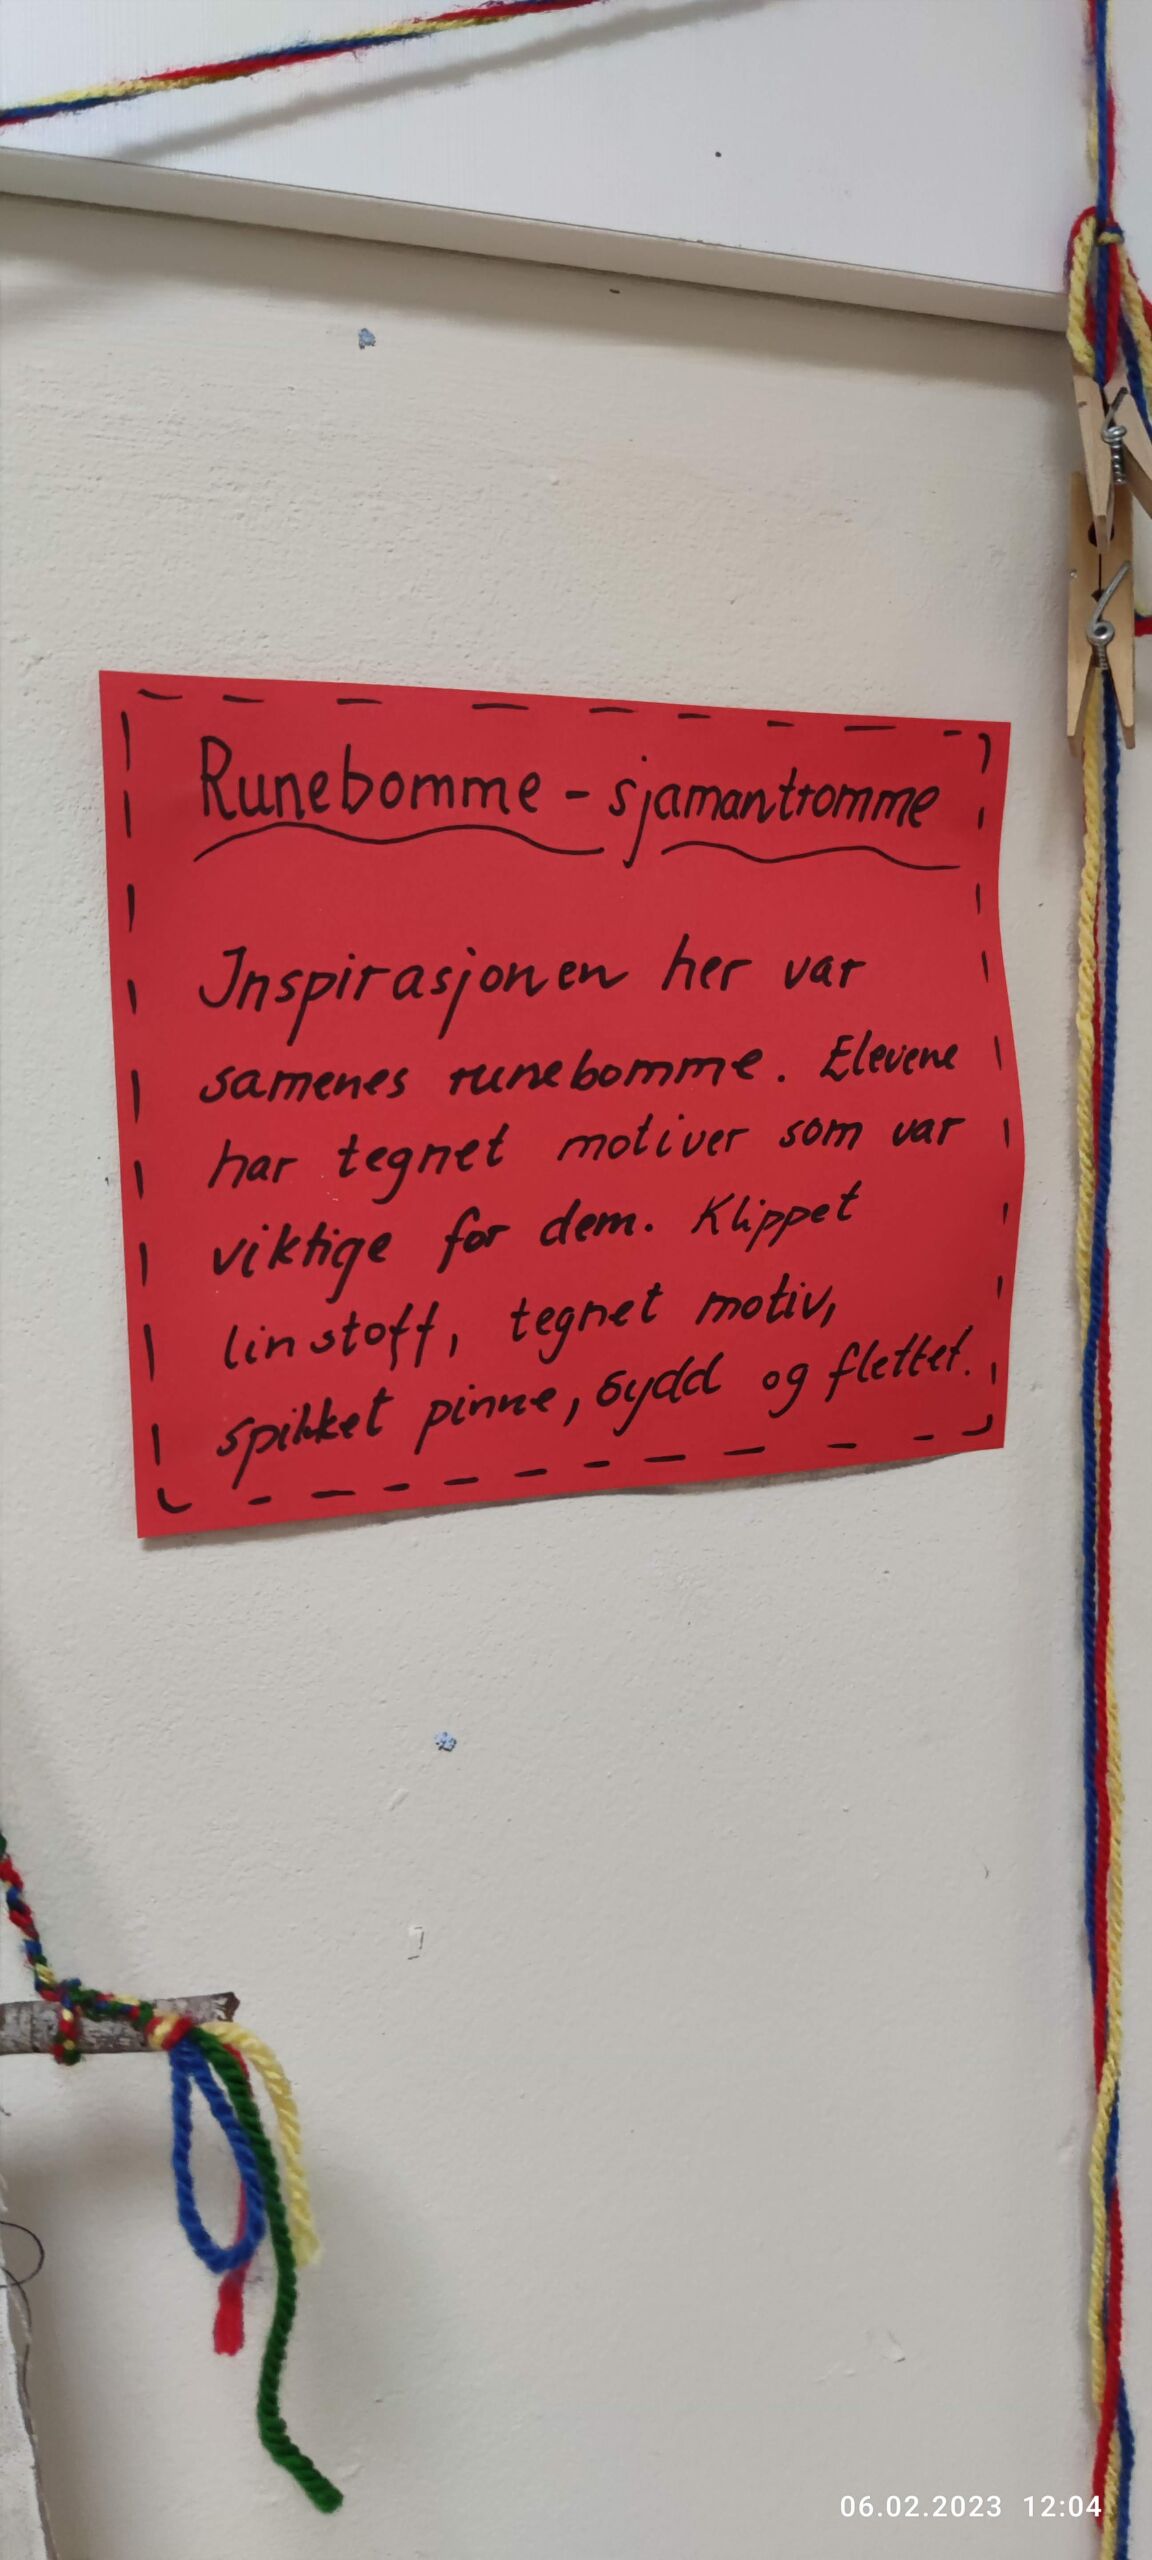 Runebomme - sjamantromme
Inspirasjonen her var
samenes runebomme. Elevene
har tegnet motiver som var
viktige for dem. Klippet
linstoff, tegnet motiv,
spikket pinne, sydd og flettet.
06.02.2023 12:04